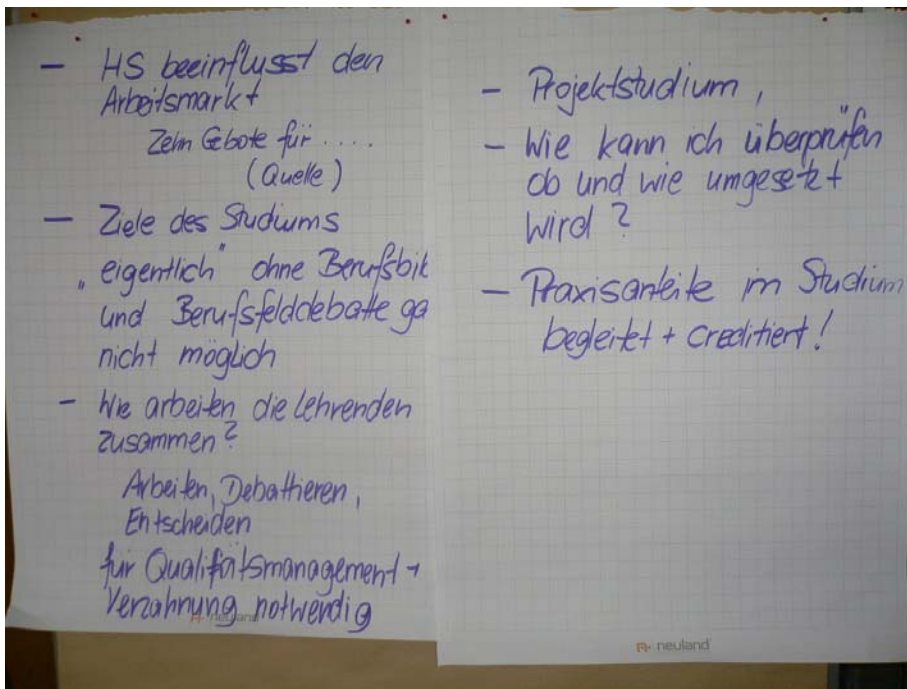 - HS beeinflusst den
Arbeitsmarkt
Zehn Gebote für ....
(Quelle)
- Ziele des Studiums
„eigentlich" ohne Berufsbil
und Berufsfelddebatte ga
nicht möglich
- Wie arbeiten die Lehrenden
zusammen?
Arbeiten, Debattieren,
Entscheiden
für Qualitätsmanagement +
Verzahnung notwendig
neuland
- Projektstudium,
- Wie kann ich überprüfen
ob und wie umgesetzt
wird?
- Praxisanteile im Studium
begleitet + creditiert!
neuland